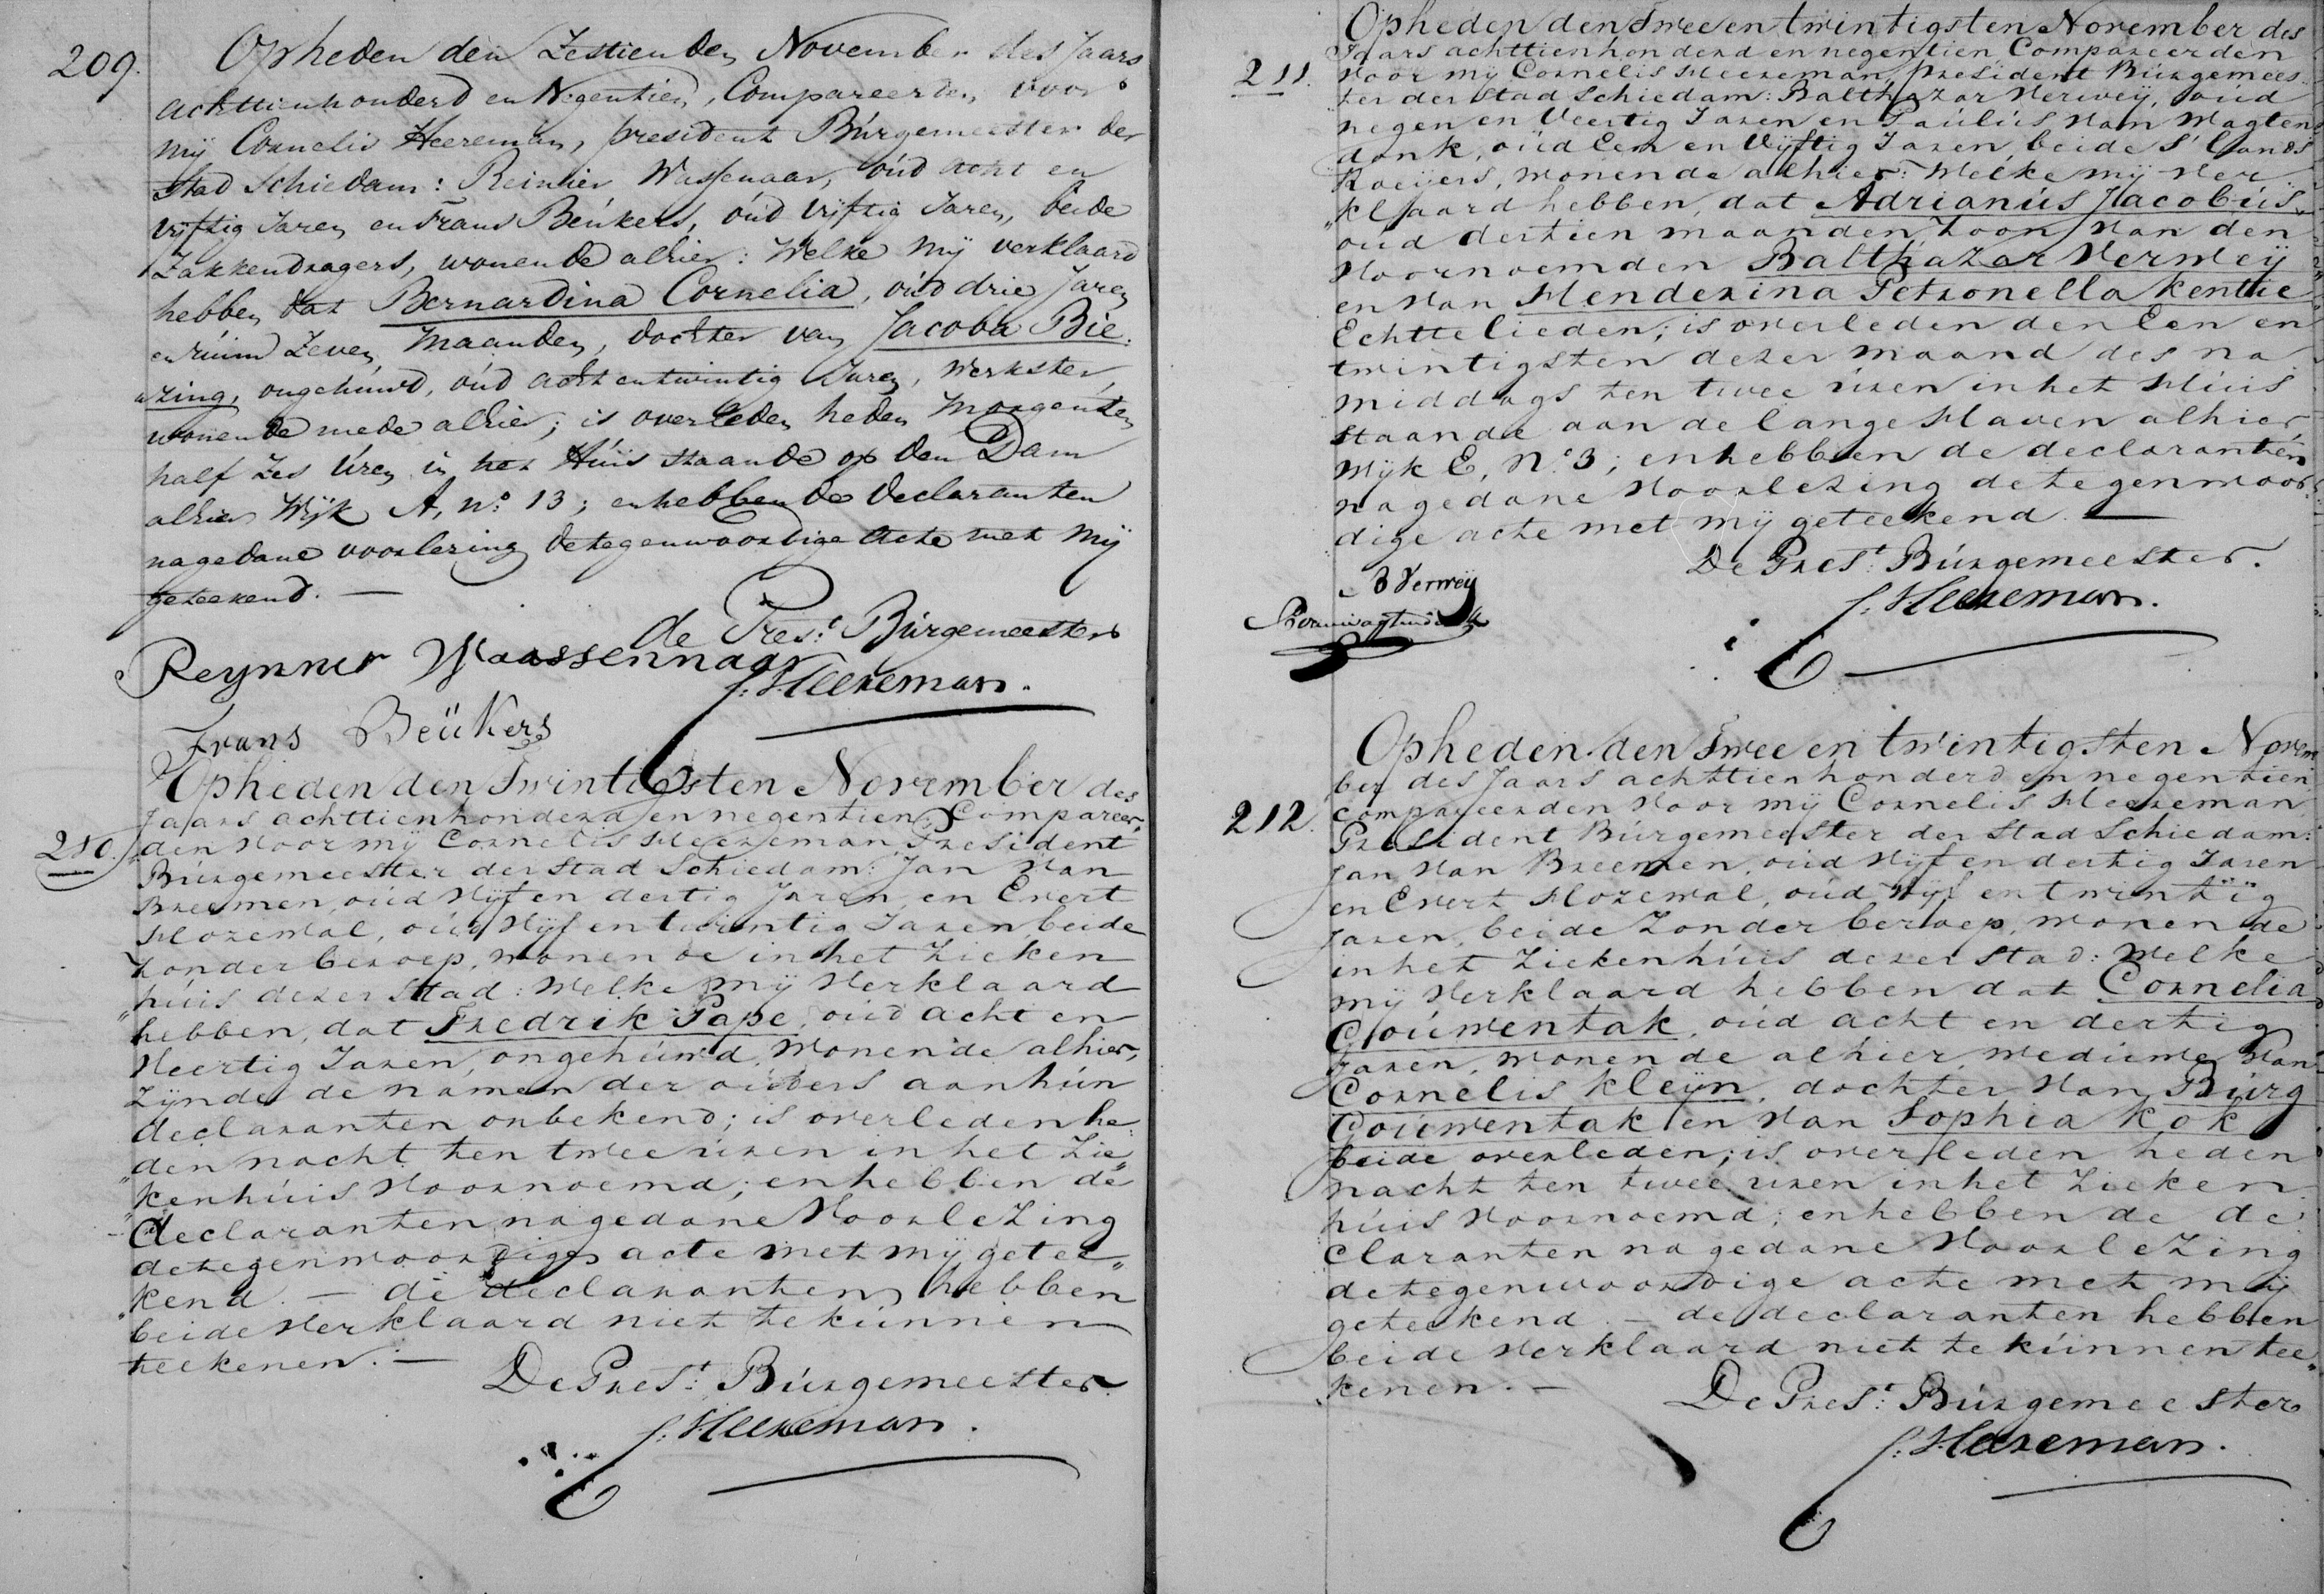 209.
Opheden den Zestienden November des Jaars
achttienhonderd en Negentien, Compareerden voor
mij Cornelis Heereman, president Búrgemeester der
stad Schiedam: Reinier Wassenaar, óud acht en
vijftig Jaren en Frans Beúkers, óud vijftig Jaren, beide
Zakkendragers, wonende alhier: Welke mij verklaard
hebben dat Bernardina Cornelia, óud drie Jaren
en rúim Zeven Maanden, dochter van Jacoba Bie-
zing, ongehúwd, óud acht entwintig Jaren, Werkster,
wonende mede alhier; is overleden heden Morgen ten
half Zes Úren in het Húis staande op den Dam
alhier Wijk A, no. 13; enhebben de Declaranten
nagedane voorlezing detegenwoordige Acte met mij
geteekend. —
de Prest. Búrgemeester
Reynner Waassennaar
C: Heereman.
Frans Beükers
210.
Opheden den Twintigsten November des
Jaars achttienhonderd en negentien, Compareer-
den voor mij Cornelis Heereman, President
Búrgemeester der Stad Schiedam: Jan van
Breemen, oúd vijf en dertig Jaren, en Evert
Hozewal, oúd vijf en twintig Jaren, beide
zonder beroep, wonende in het Zieken
húis dezer Stad: Welke mij verklaard
hebben, dat Fredrik Pape, oúd acht en
veertig Jaren, ongehúwd, wonende alhier,
zijnde de namen der oúders aan hún
declaranten onbekend; is overleden he-
den nacht ten twee úren in het Zie-
kenhúis voornoemd; enhebben de
declaranten nagedane voorlezing
detegenwoordige acte met mij getee-
kend. — de declaranten hebben
beide verklaard niet te kúnnen
teekenen. —
De Prest: Búrgemeester
C: Heereman.
211.
Opheden den Twee en twintigsten November des
Jaars achttienhonderd en negentien Compareerden
voor mij Cornelis Heereman, president Búrgemees-
ter der Stad Schiedam: Balthazar Verweij, oúd
negen en Veertig Jaren en Paúlús van Wagten
donk, oúd Een en Vijftig Jaren, beide S'Lands
Roeijers, wonende alhier: Welke mij ver
klaard hebben, dat Adrianús Jacobús,
oúd dertien maanden, zoon van den
voornoemden Balthazar Verweij
en van Henderina Petronella Kentie
Echtelieden; is overleden den Een en
twintigsten dezer maand des na
middags ten twee úren in het Húis
staande aan de lange Haven alhier,
Wijk E, No. 3; enhebben de declaranten
nagedane voorlezing detegenwoor-
dige acte met mij geteekend. —
De Prest: Búrgemeester.
B Verweij
C: Heereman.
212.
Opheden den Twee en twintigsten Novem
ber des Jaars achttienhonderd en negentien
compareerden voor mij Cornelis Heereman
President Búrgemeester der Stad Schiedam:
Jan van Breemen, oúd vijf en dertig Jaren
en Evert Hozewal, oúd vijf en twintig
Jaren, beide zonder beroep, wonende
in het Ziekenhúis dezer stad: Welke
mij verklaard hebben dat Cornelia
Goúwentak, oúd acht en dertig
Jaren, wonende alhier, Weduwe van
Cornelis Kleijn, dochter van Búrg
Goúwentak en van Sophia Kok
beide overleden; is overleden heden
nacht ten twee úren in het Zieken
húis voornoemd; enhebben de de-
claranten nagedane voorlezing
detegenwoordige acte met mij
geteekend. — de declaranten hebben
beide verklaard niet te kúnnen tee-
kenen. —
De Prest: Búrgemeester
C: Heereman.